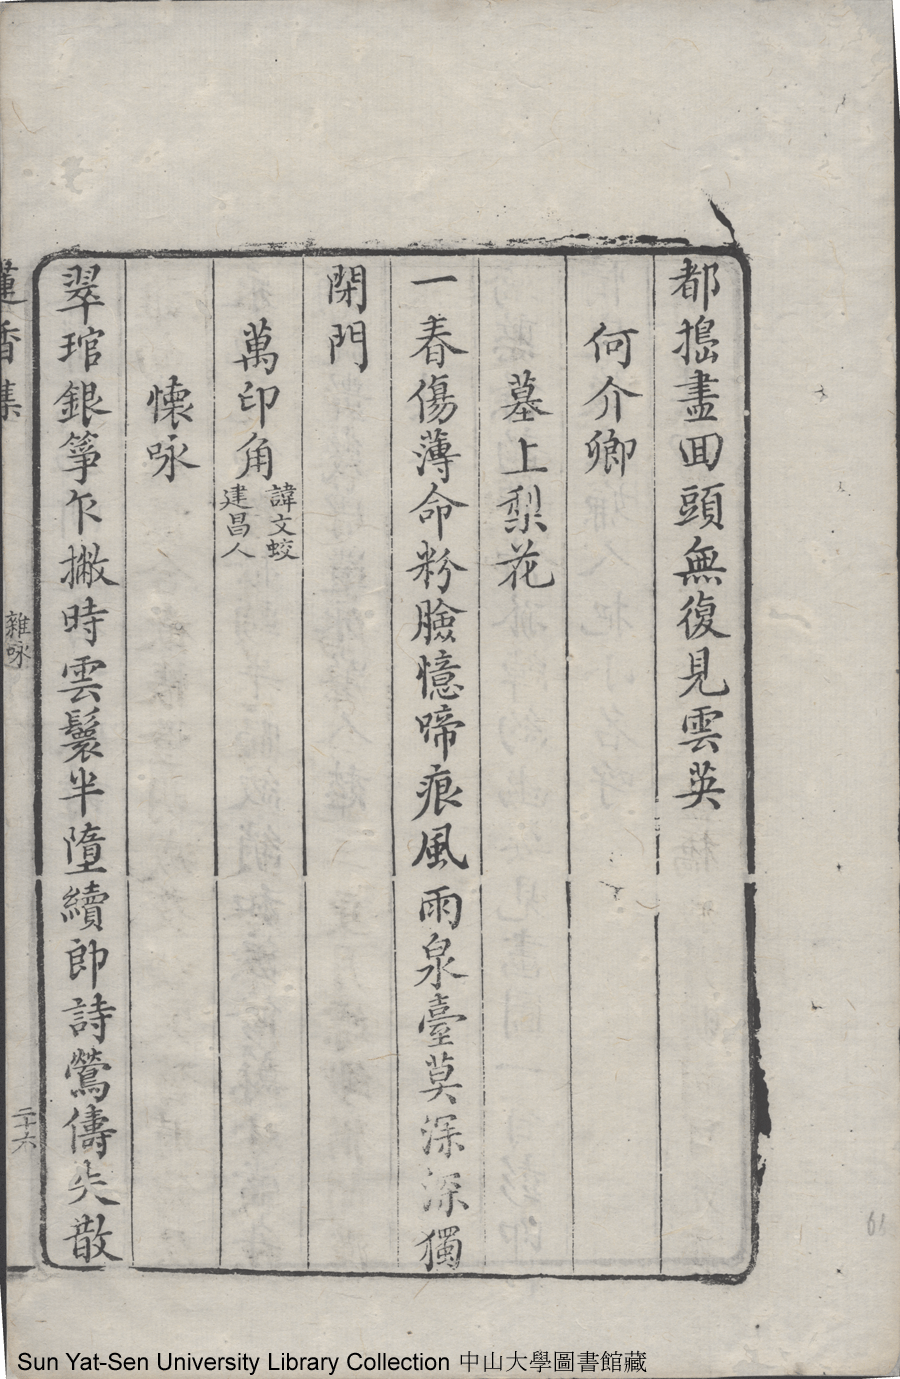 都搗盡回頭無復見雲英
何介卿
墓上梨花
一春傷薄命粉臉憶啼痕風雨泉臺莫深深獨
閉門
萬印角 諱文蛟 建昌人
懷咏
翠琯銀箏乍撇時雲鬟半墮續郎詩鶯儔失散
蓮香集
雜咏
二十六
61
Sun Yat-Sen University Library Collection 中山大學圖書館藏